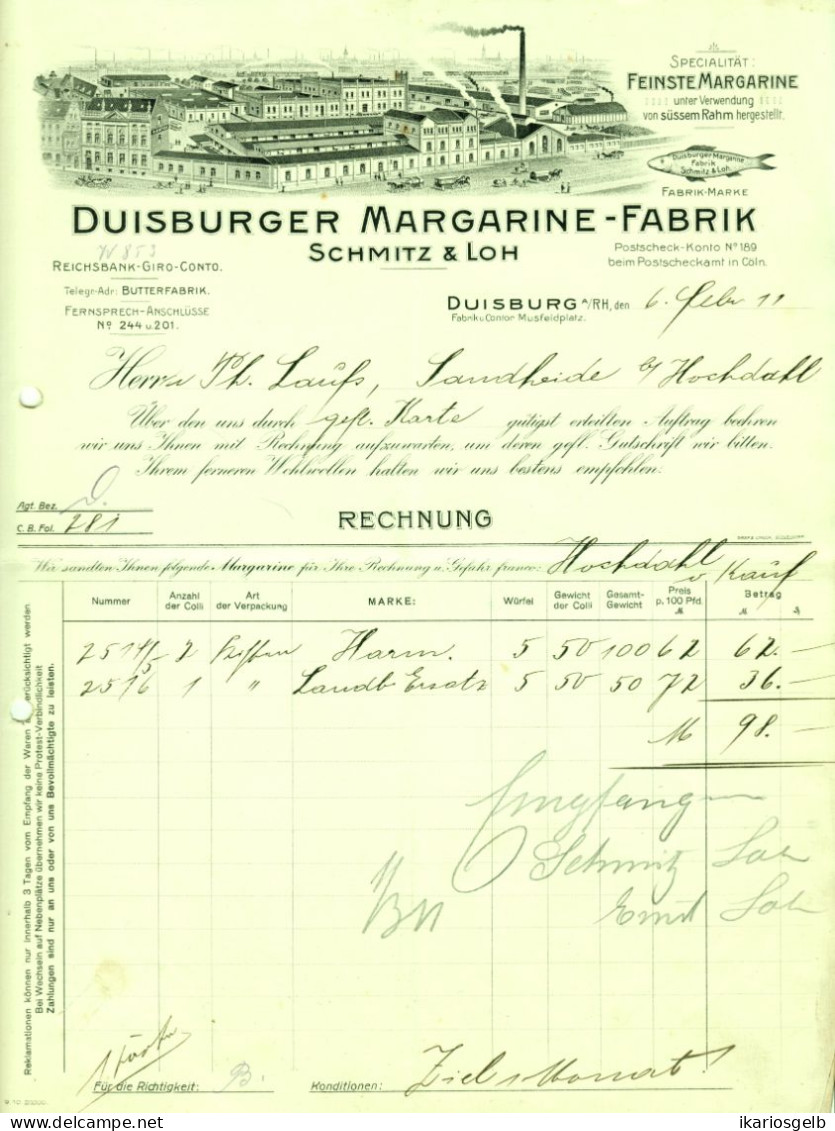 SPECIALITÄT:
FEINSTE MARGARINE
unter Verwendung
von süssem Rahm hergestellt.
Duisburger Margarine
Fabrik
Schmitz & Loh
FABRIK-MARKE
DUISBURGER MARGARINE-FABRIK
SCHMITZ & LOH
Postscheck-Konto No 189
beim Postscheckamt in Cöln.
W 853
REICHSBANK-GIRO-CONTO.
Telegr.-Adr: BUTTERFABRIK.
FERNSPRECH-ANSCHLÜSSE
No 244 u. 201.
DUISBURG A/RH, den 6. Febr 11
Fabrik u. Contor Musfeldplatz.
Herrn Ph. Laufs, Sandheide b/ Hochdahl
Über den uns durch gefl. Karte gütigst erteilten Auftrag beehren
wir uns Ihnen mit Rechnung aufzuwarten, um deren gefl. Gutschrift wir bitten.
Ihrem ferneren Wohlwollen halten wir uns bestens empfohlen.
Agt. Bez. D.
C. B. Fol. 281
RECHNUNG
Wir sandten Ihnen folgende Margarine für Ihre Rechnung u. Gefahr franco: Hochdahl
v Kauf
Nummer Anzahl der Colli Art der Verpackung MARKE: Würfel Gewicht der Colli Gesamt-Gewicht Preis p. 100 Pfd. M Betrag M ₰
2514/5 2 Harm. 5 50 100 62 62.—
2516 1 " Landb. Ersatz 5 50 50 72 36.—
M 98.—
Empfangen
Schmitz Loh
Emil Loh
Reklamationen können nur innerhalb 3 Tagen vom Empfang der Waren berücksichtigt werden.
Bei Wechseln auf Nebenplätze übernehmen wir keine Protest-Verbindlichkeit
Zahlungen sind nur an uns oder von uns Bevollmächtigte zu leisten.
Für die Richtigkeit: B. Konditionen: Ziel 1 Monat!
ikariosgelb